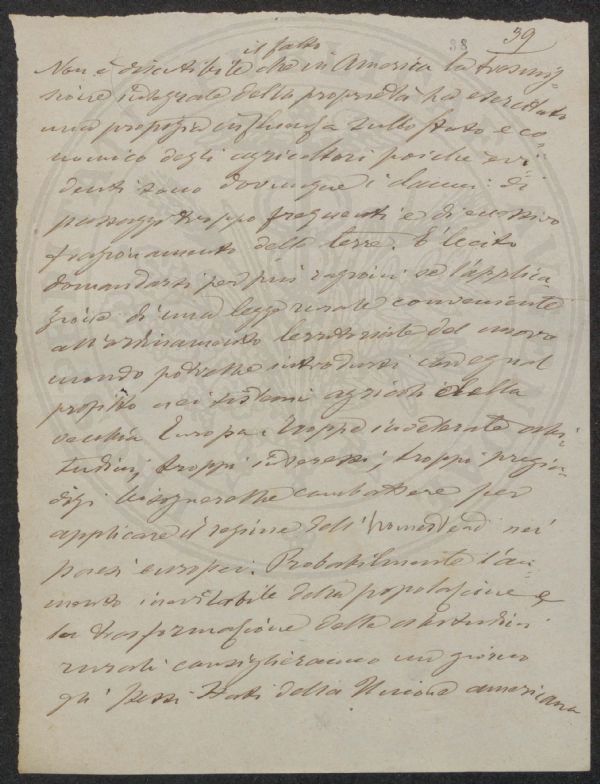 38
39
il fatto
Non è discutibile che in America la trasmis-
sione integrale della proprietà ha esercitato
una propizia influenza sullo stato eco-
nomico degli agricoltori poichè evi-
denti sono dovunque i danni di
passaggi troppo frequenti e di eccessivo
frazionamento delle terre. È lecito
domandarsi per più ragioni se l'applica-
zione di una legge rurale conveniente
all'ordinamento territoriale del nuovo
mondo potrebbe introdursi con egual
profitto nei sistemi agricoli della
vecchia Europa. Troppe inveterate abi-
tudini, troppi interessi, troppi pregiu-
dizi bisognerebbe combattere per
applicare il regime dell'homestead nei
paesi europei. Probabilmente l'au-
mento inevitabile della popolazione e
la trasformazione delle abitudini
rurali consiglieranno un giorno
gli stessi Stati della Unione americana